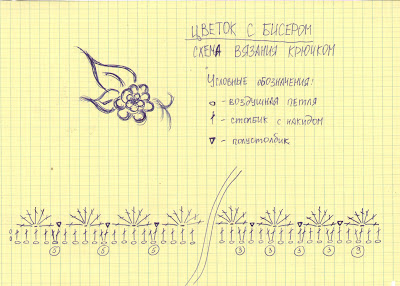 ЦВЕТОК С БИСЕРОМ
СХЕМА ВЯЗАНИЯ КРЮЧКОМ
Условные обозначения:
- воздушная петля
- столбик с накидом
- полустолбик
5 5 5 3 3 3 3 3